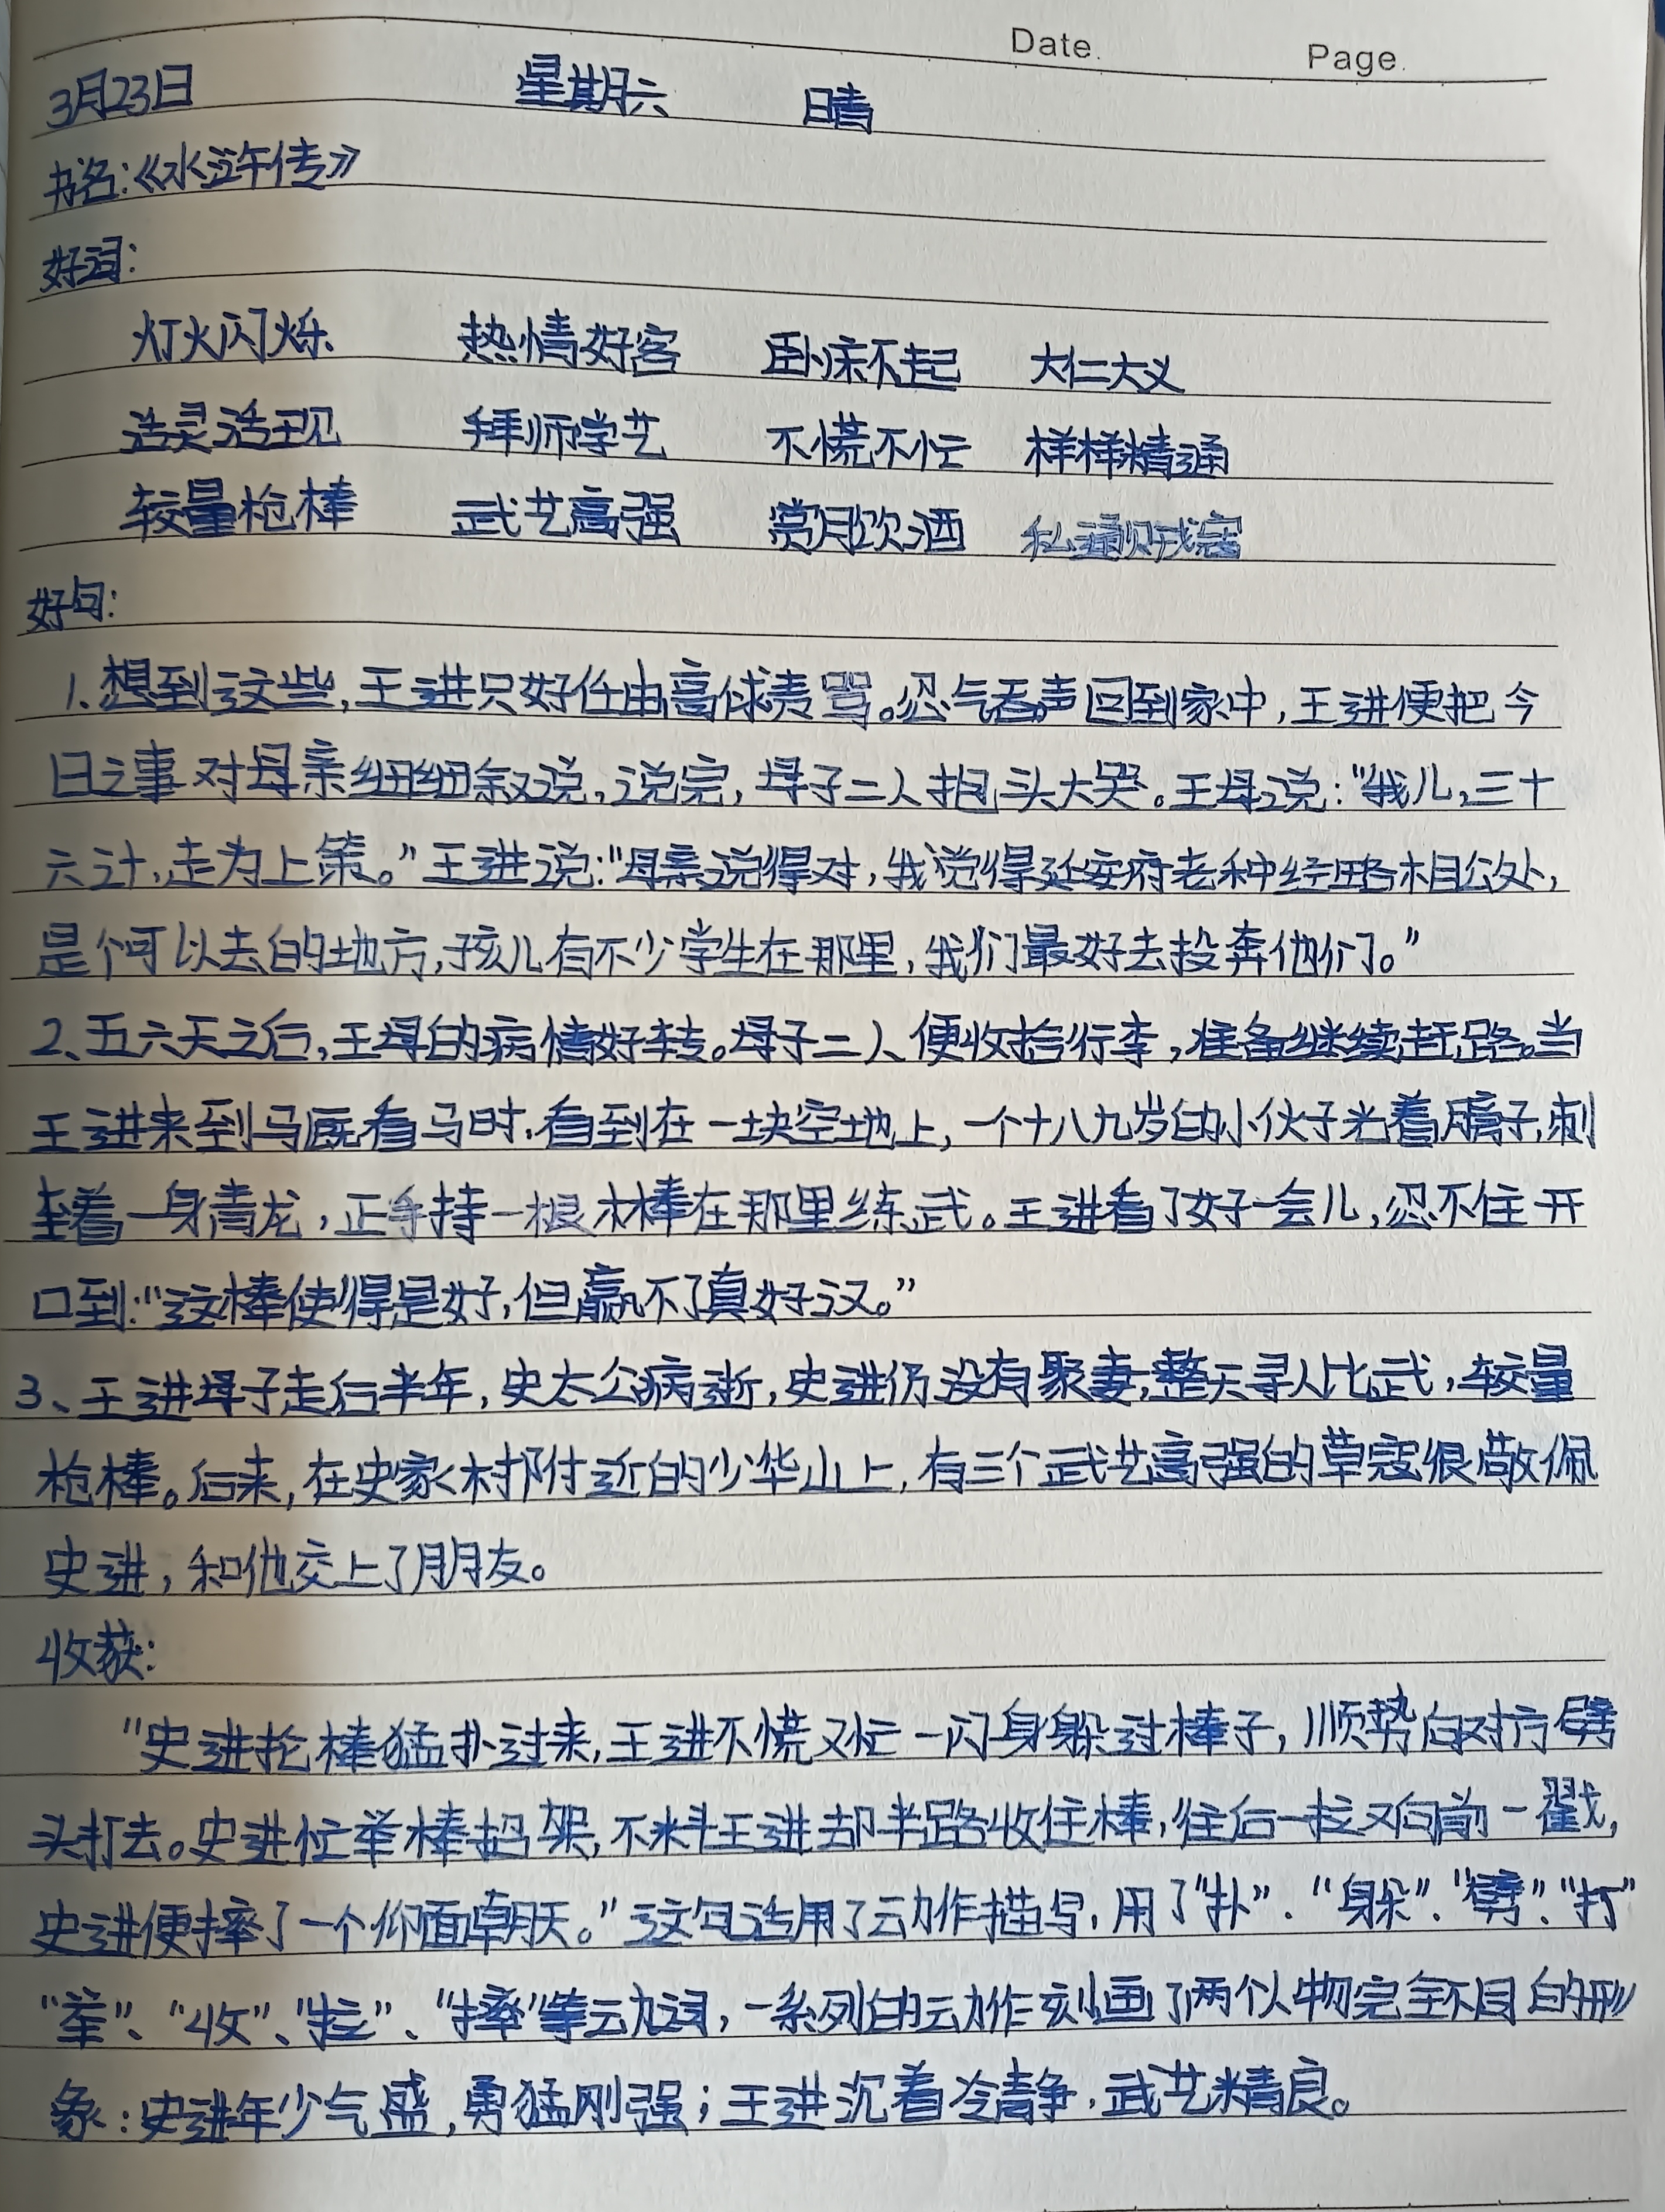 Date.
Page.
3月23日 星期六 晴
书名:《水浒传》
好词:
灯火闪烁 热情好客 卧床不起 大仁大义
活灵活现 拜师学艺 不慌不忙 样样精通
较量枪棒 武艺高强 赏月饮酒 私通贼寇
好句:
1.想到这些,王进只好任由高俅责骂。忍气吞声回到家中,王进便把今
日之事对母亲细细叙说,说完,母子二人抱头大哭。王母说:“我儿,三十
六计,走为上策。”王进说:“母亲说得对,我觉得延安府老种经略相公处,
是个可以去的地方,孩儿有不少学生在那里,我们最好去投奔他们。”
2、五六天之后,王母的病情好转。母子二人便收拾行李,准备继续赶路。当
王进来到马厩看马时,看到在一块空地上,一个十八九岁的小伙子光着膀子,刺
着一身青龙,正手持一根木棒在那里练武。王进看了好一会儿,忍不住开
口到:“这棒使得是好,但赢不了真好汉。”
3、王进母子走后半年,史太公病逝,史进仍没有聚妻,整天寻人比武,较量
枪棒。后来,在史家村附近的少华山上,有三个武艺高强的草寇很敬佩
史进,和他交上了朋友。
收获:
“史进抡棒猛扑过来,王进不慌不忙一闪身躲过棒子,顺势向对方劈
头打去。史进忙举棒招架,不料王进却半路收住棒,往后一拉又向前一戳,
史进便摔了一个仰面朝天。”这句话用了动作描写,用了“扑”、“躲”、“劈”、“打”
“举”、“收”、“拉”、“摔”等动词,一系列的动作刻画了两个人物完全不同的形
象:史进年少气盛,勇猛刚强;王进沉着冷静,武艺精良。